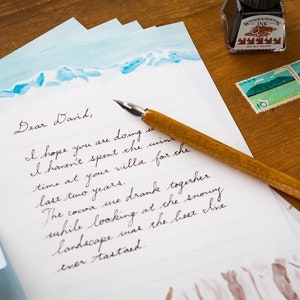 Dear David,
I hope you are doing
I haven't spent the
time at your villa for the
last two years.
The cocoa we drank together
while looking at the snowy
landscape was the best I've
ever tasted.
WINSOR & NEWTON
INK
10